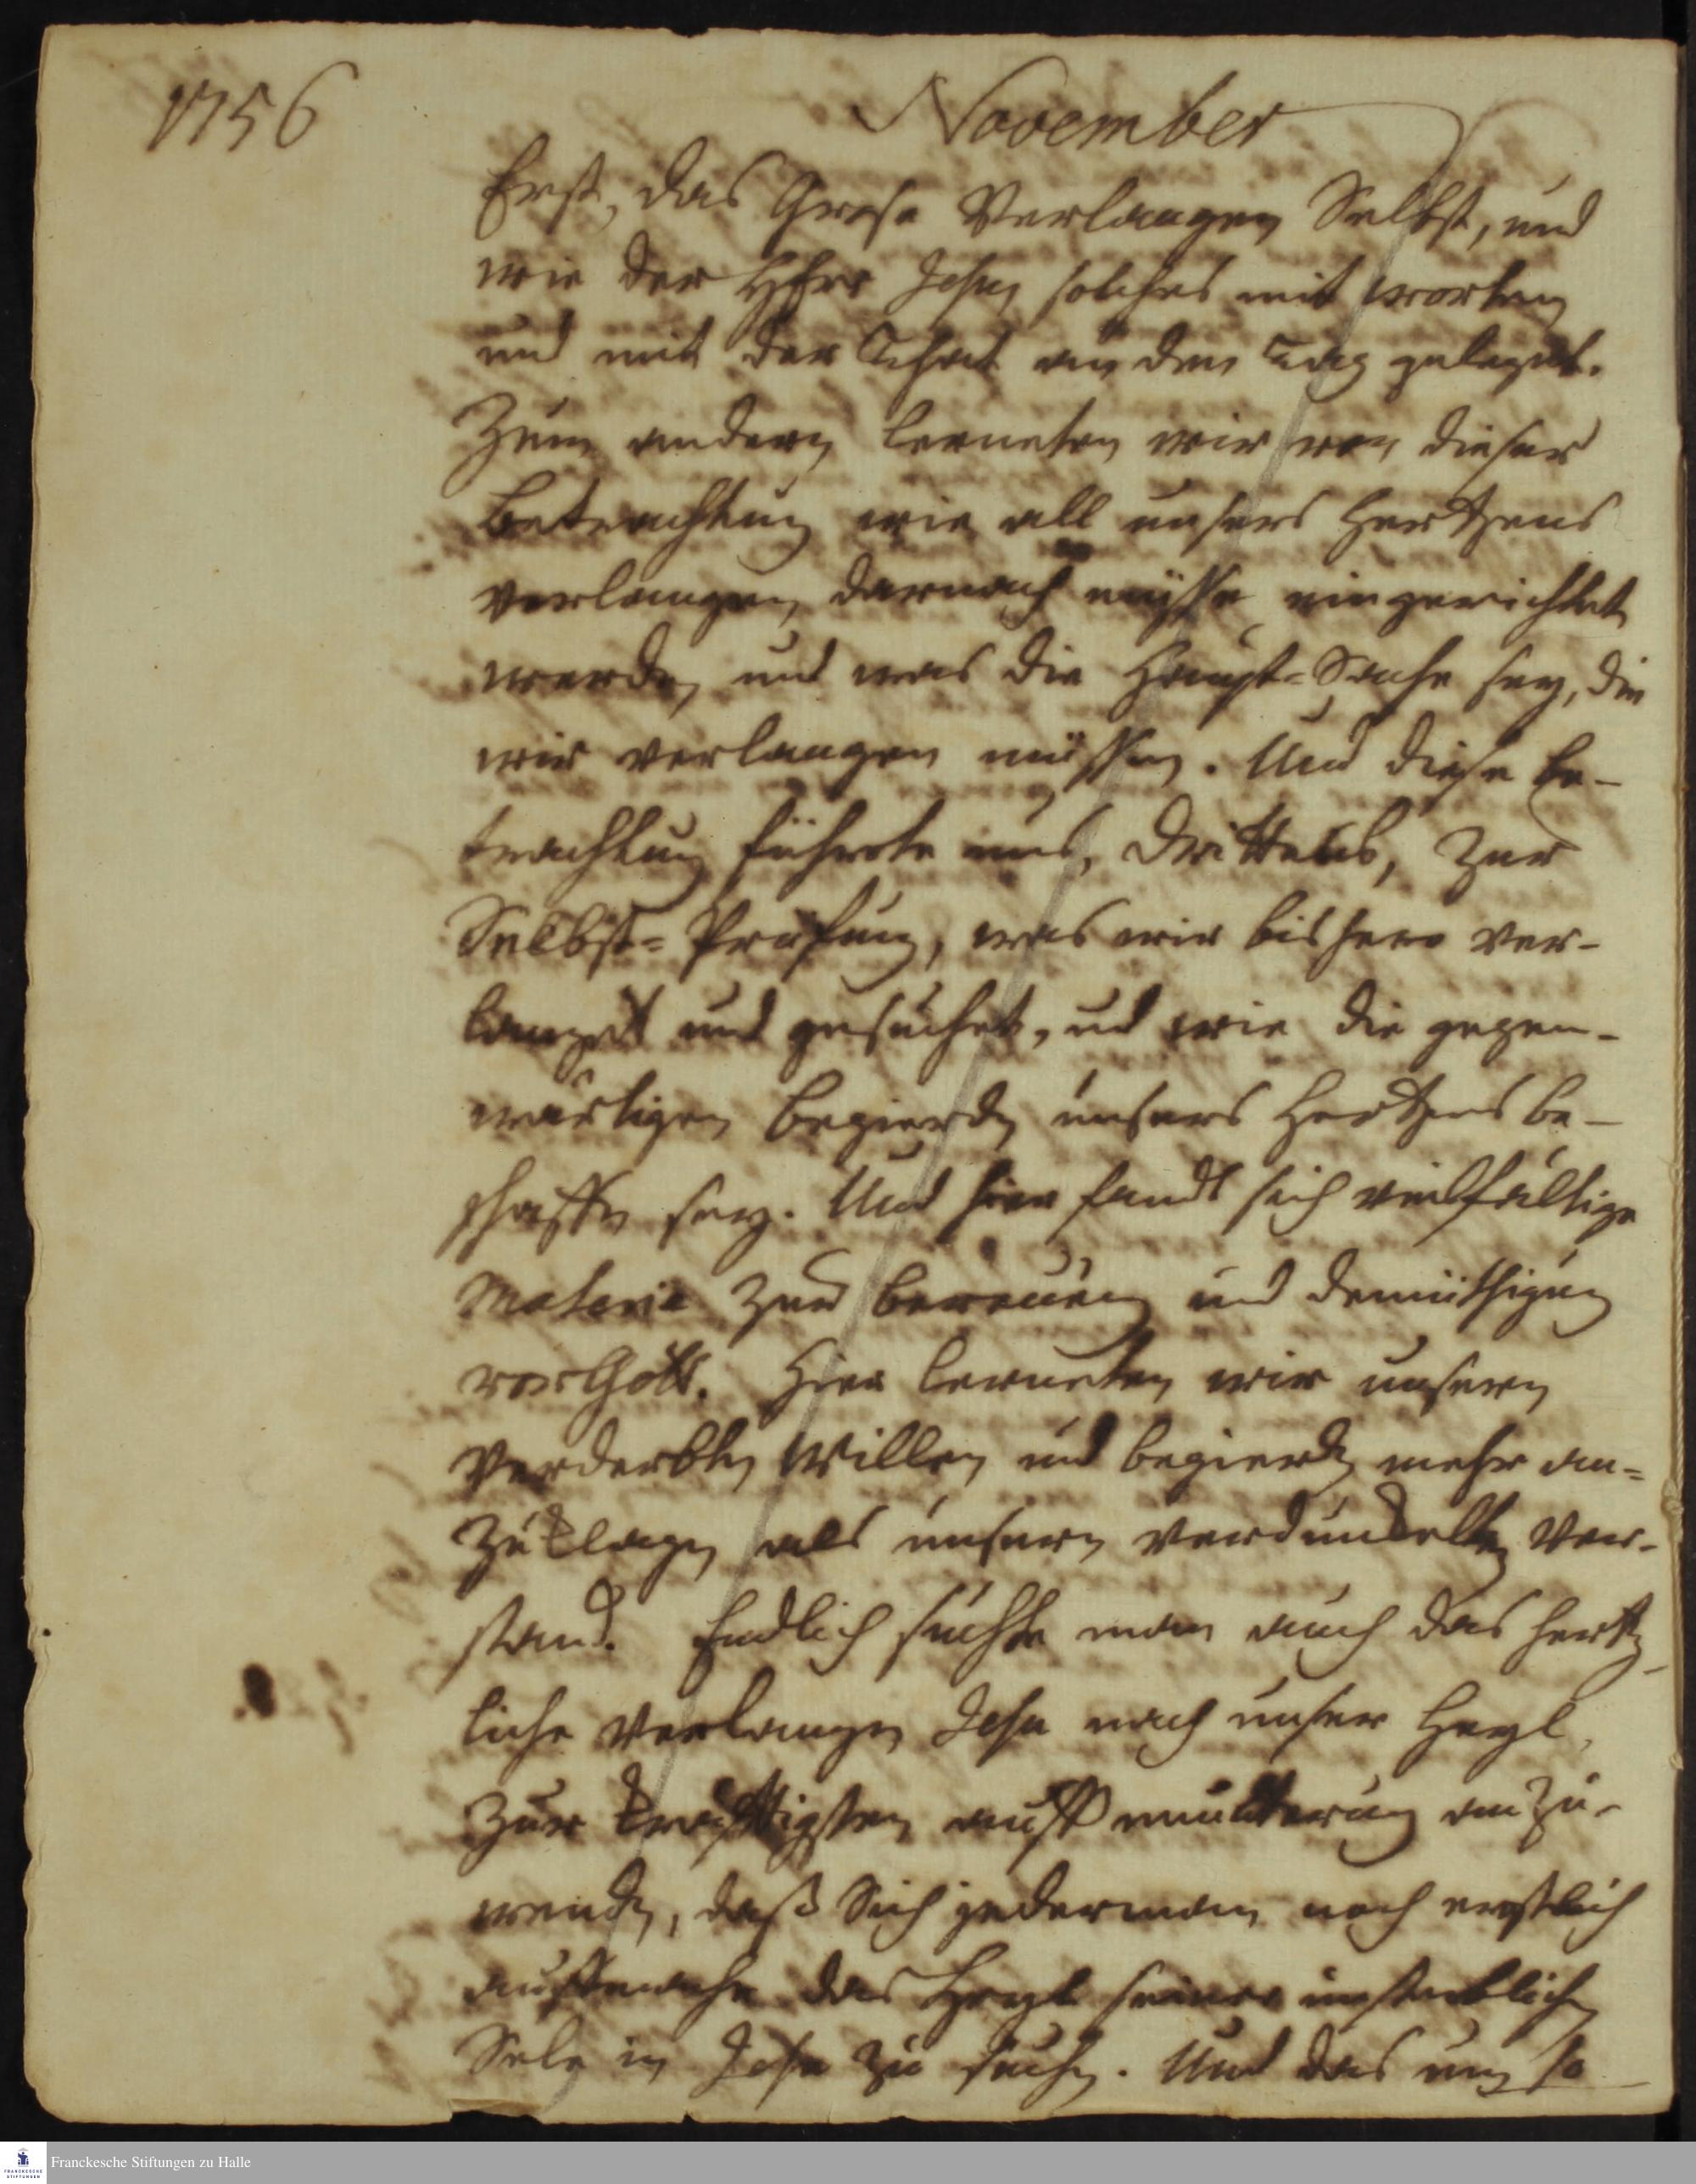 1756
November
Erst, das Grose Verlangen Selbst, und
wie der HErr Jesus solches mit worten
und mit der That an den Tag geleget.
Zum andern lerneten wir von dieser
Betrachtung wie all unsers Hertzens
verlangen darnach müsse eingerichtet
werden und was die Haupt-Sache sey, die
wir verlangen müssen. Und diese Be-
trachtung führete uns, Drittens, zur
Selbst-Prüfung, was wir bishero ver-
langet und gesuchet, und wie die gegen-
wärtigen Begierden unsers Hertzens be-
schaffen sey. Und hier fandt sich vielfältige
Materie zur bereuung und demüthigung
vor Gott. Hier lerneten wir unsern
verderbten Willen und begierden mehr an-
zuklagen als unsern verdunckelten Ver-
stand. Endlich suchte man auch das hertz-
liche Verlangen Jesu nach unser Heyl
zur kräfftigsten auffmunterung anzu-
wenden, daß Sich jederman noch ernstlich
auffmache das Heyl seiner unsterblichen
Sele in Jesu zu suchen. Und das um so
Franckesche Stiftungen zu Halle
FRANCKESCHE
STIFTUNGEN